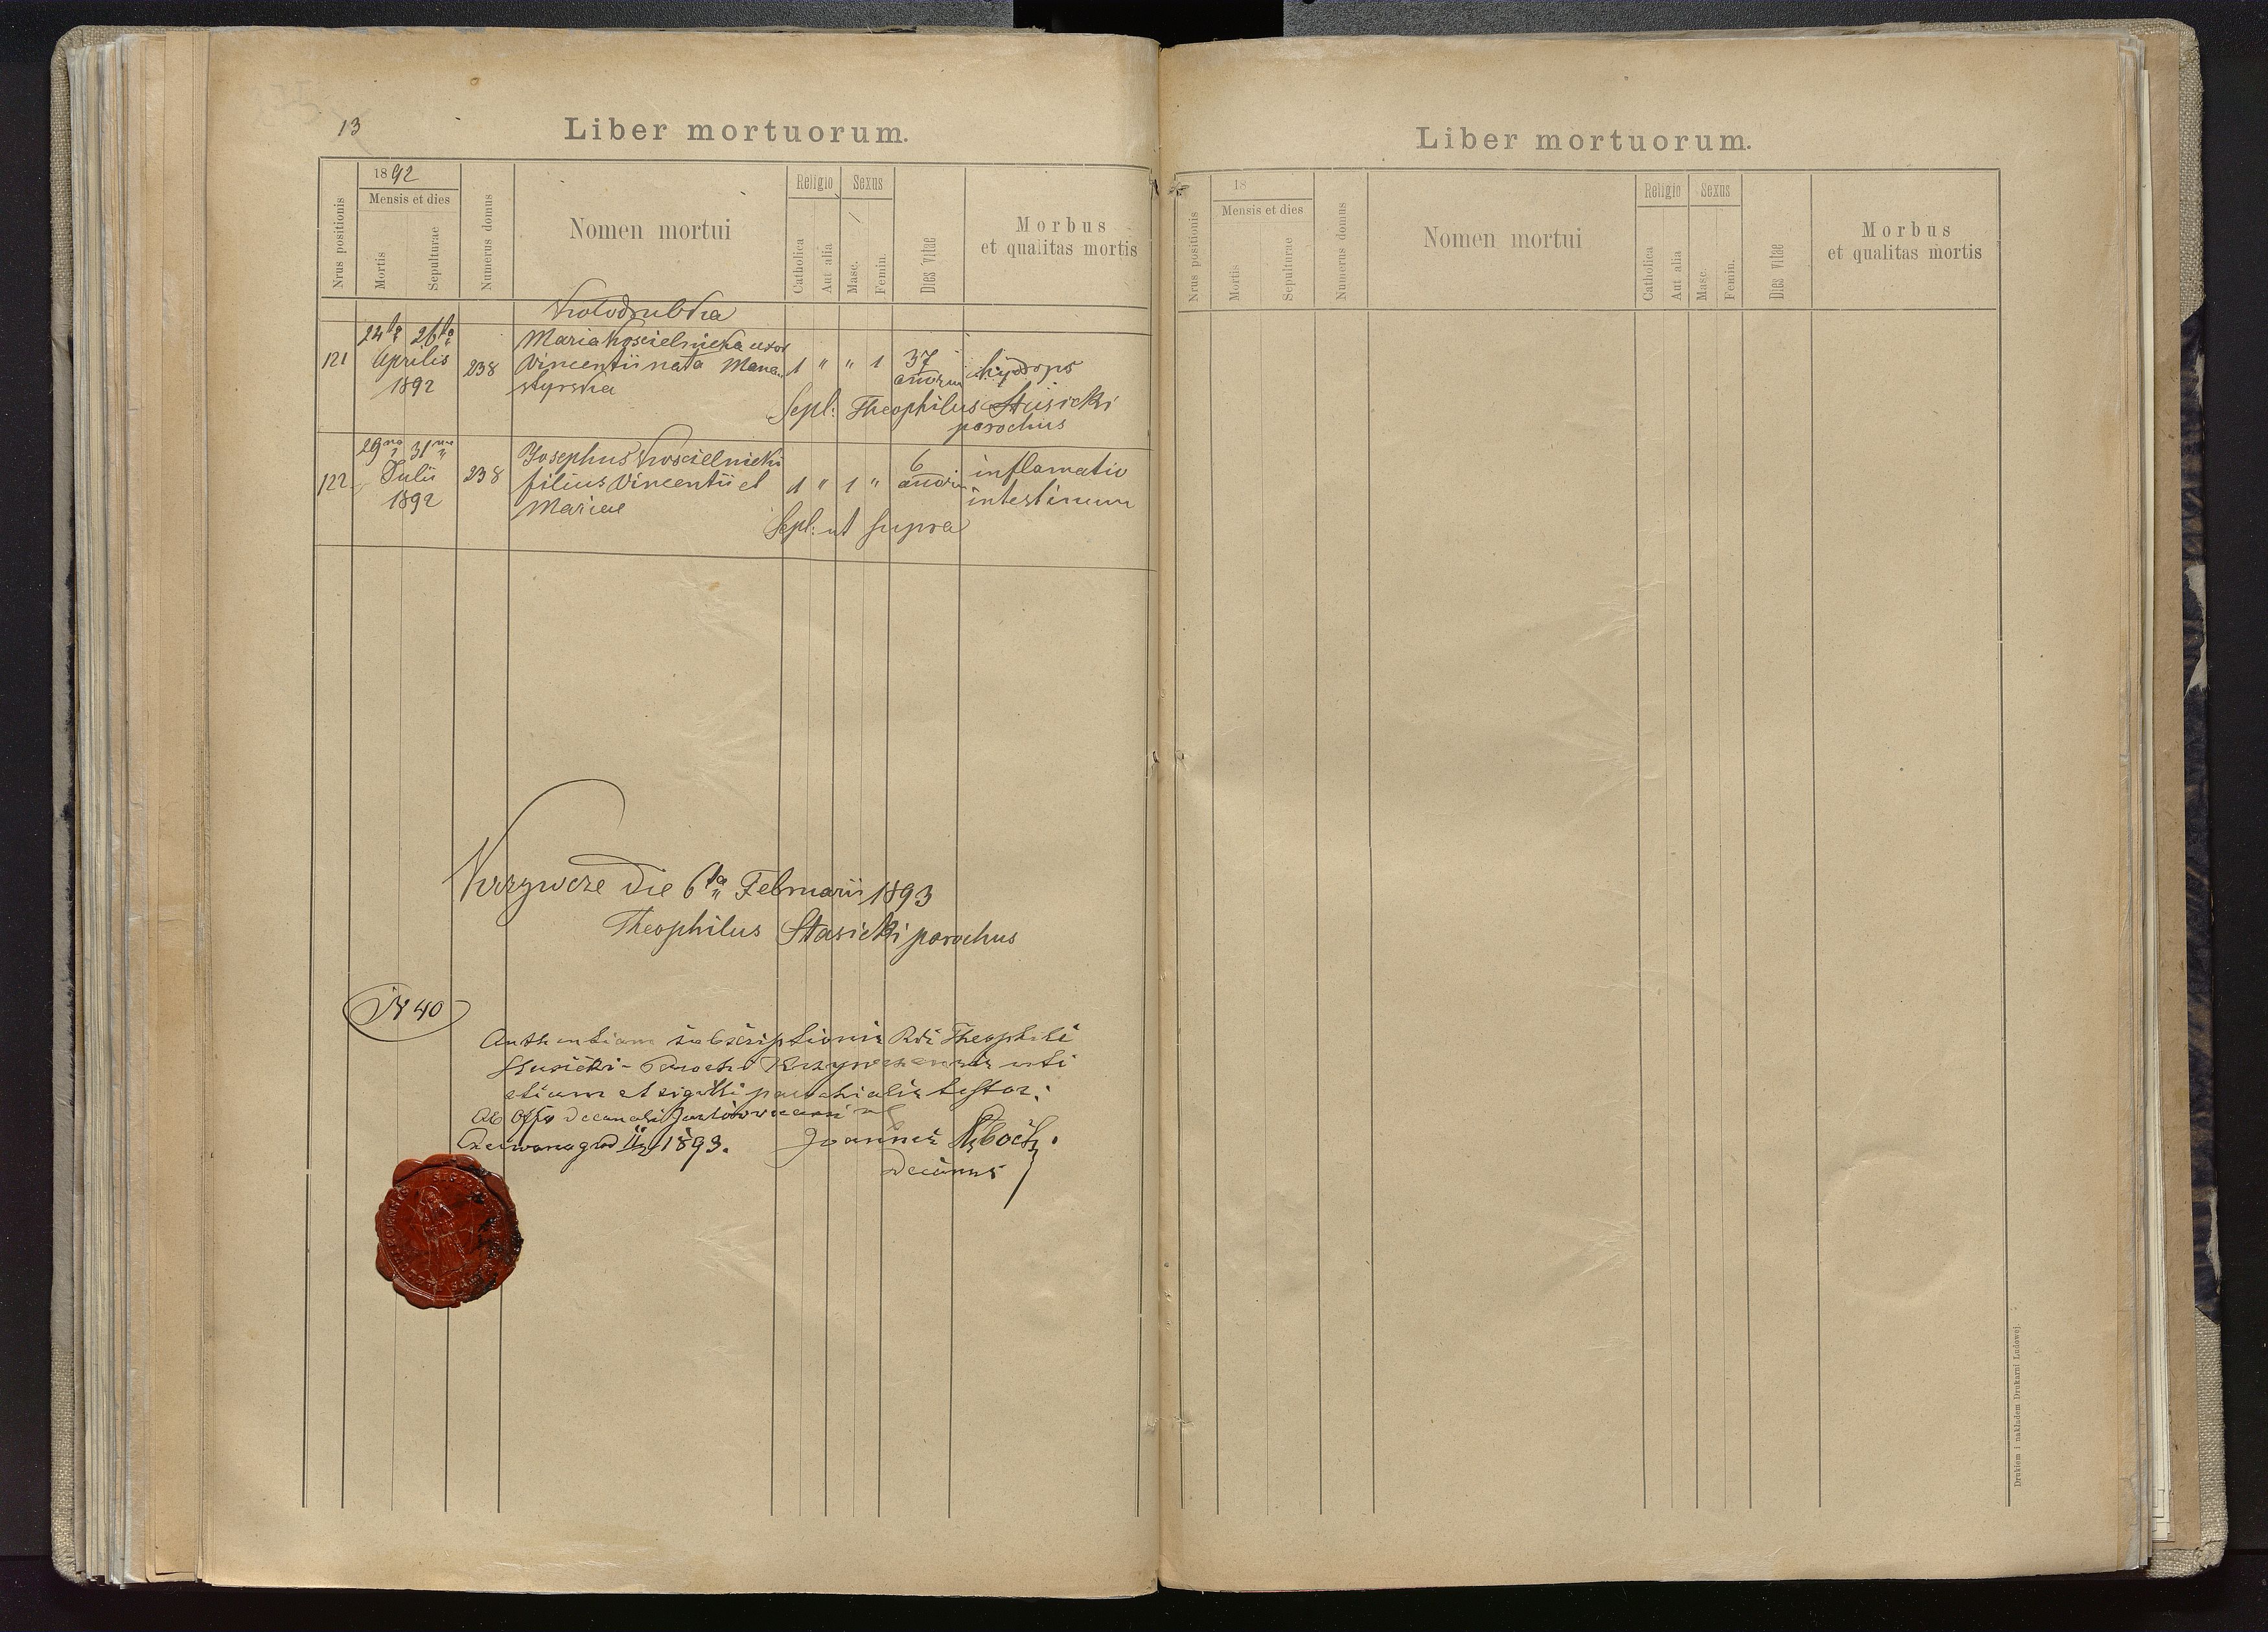 13
Liber mortuorum.
1892
Nrus positionis
Mensis et dies
Mortis
Sepulturae
Numerus domus
Nomen mortui
Religio
Catholica
Aut alia
Sexus
Masc.
Femin.
Dies vitae
Morbus
et qualitas mortis
Kolodrubka
24ta 26ta
Maria Koscielnicka uxor
121 Aprilis 238 Vincentii nata Mana- 1 " " 1 37 hydrops
1892 styrska anorum
Sepl: Theophilus Stasicki
parochus
29na 31ma
Josephus Koscielnicki 6 inflamatio
122 Julii 238 filius Vincentii et 1 " 1 " anorum intestinum
1892 Mariae
Sepl: ut supra
Krzywcze die 6ta Februarii 1893
Theophilus Stasicki parochus
N 40
subscriptionis Rdi Theophili
Stasicki - Parochi uti
etiam et sigilli parochialis testor:
Ab Offo Decanali
Czerwonogrod 1893. Joannes
Decanus
Liber mortuorum.
18
Nrus positionis
Mensis et dies
Mortis
Sepulturae
Numerus domus
Nomen mortui
Religio
Catholica
Aut alia
Sexus
Masc.
Femin.
Dies vitae
Morbus
et qualitas mortis
Drukiem i nakładem Drukarni Ludowej.